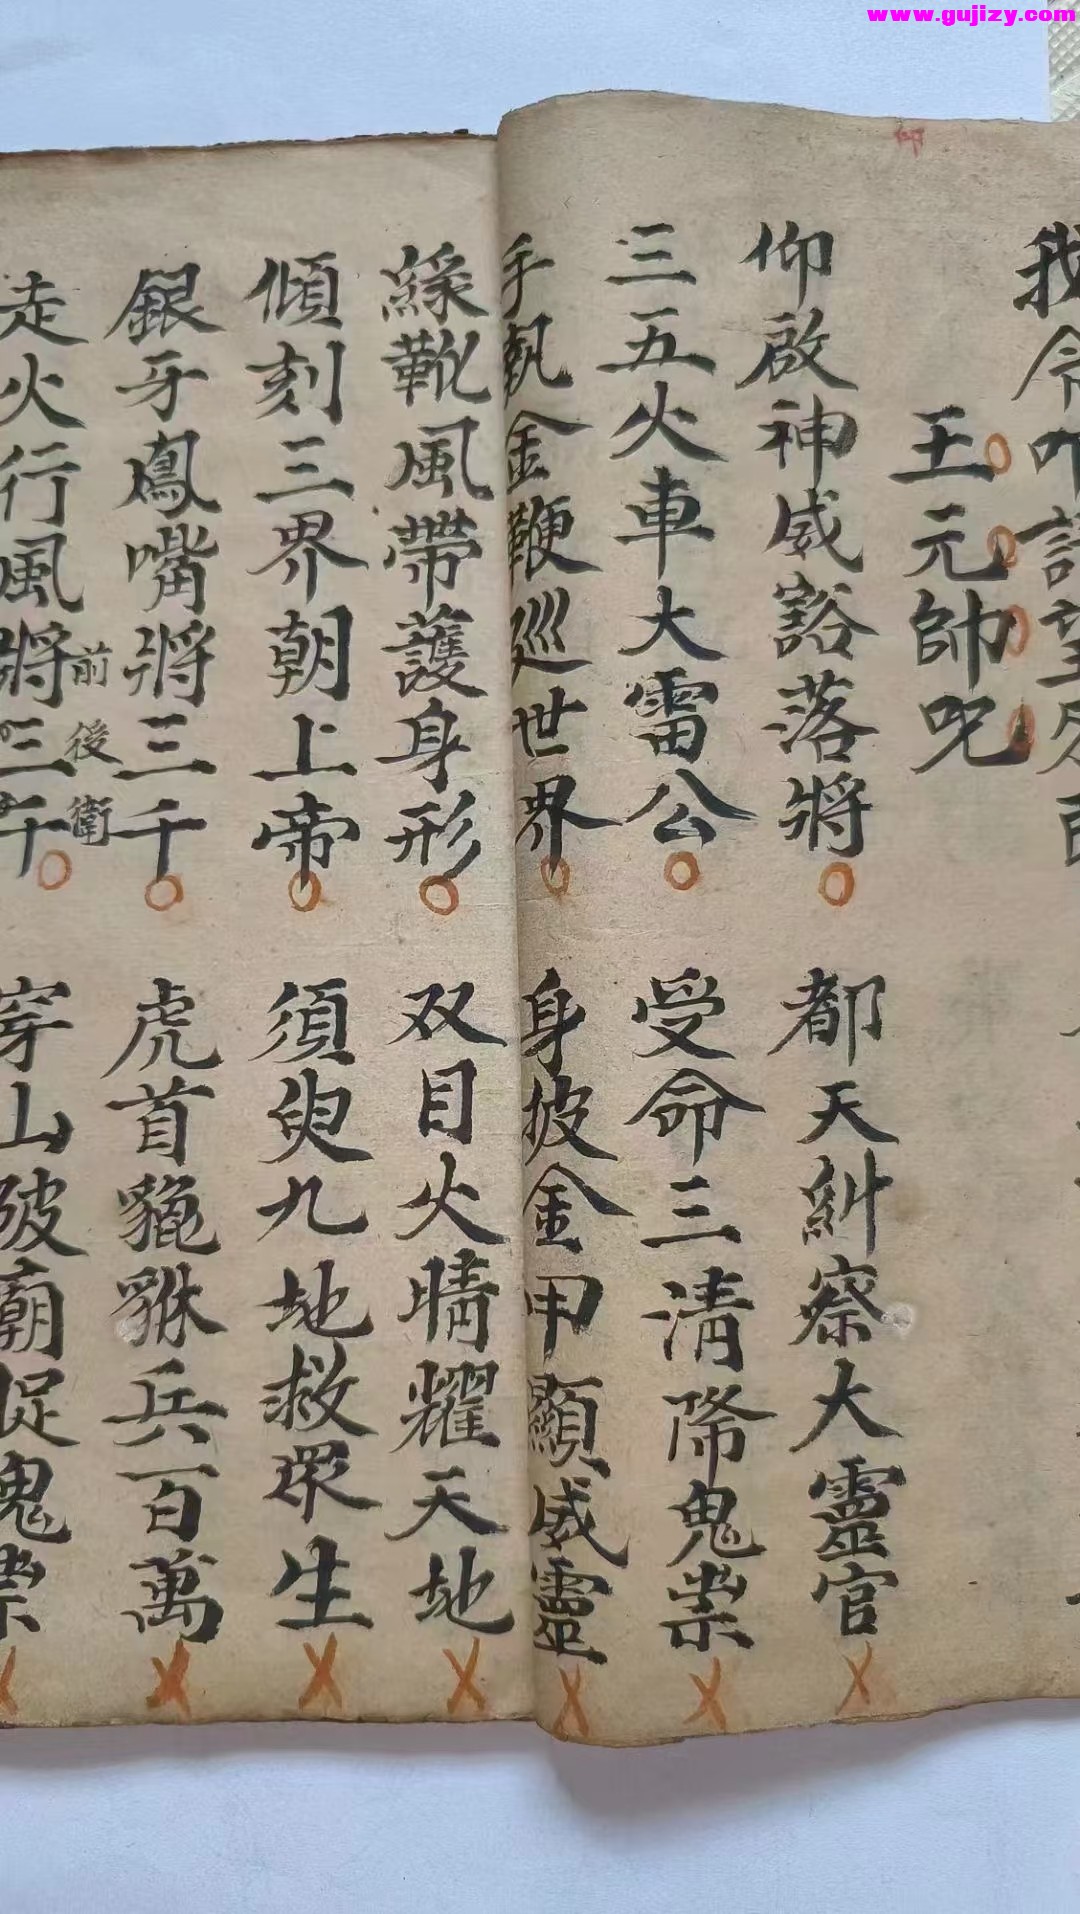 www.gujizy.com
王元帥咒
仰啟神威豁落將
都天糾察大靈官
三五火車大雷公
受命三清降鬼祟
手執金鞭巡世界
身披金甲顯威靈
綠靴風帶護身形
双目火睛耀天地
傾刻三界朝上帝
須臾九地救眾生
銀牙鳳嘴將三千
虎首貔貅兵百萬
前後衛
走火行風將三千
穿山破廟捉鬼祟